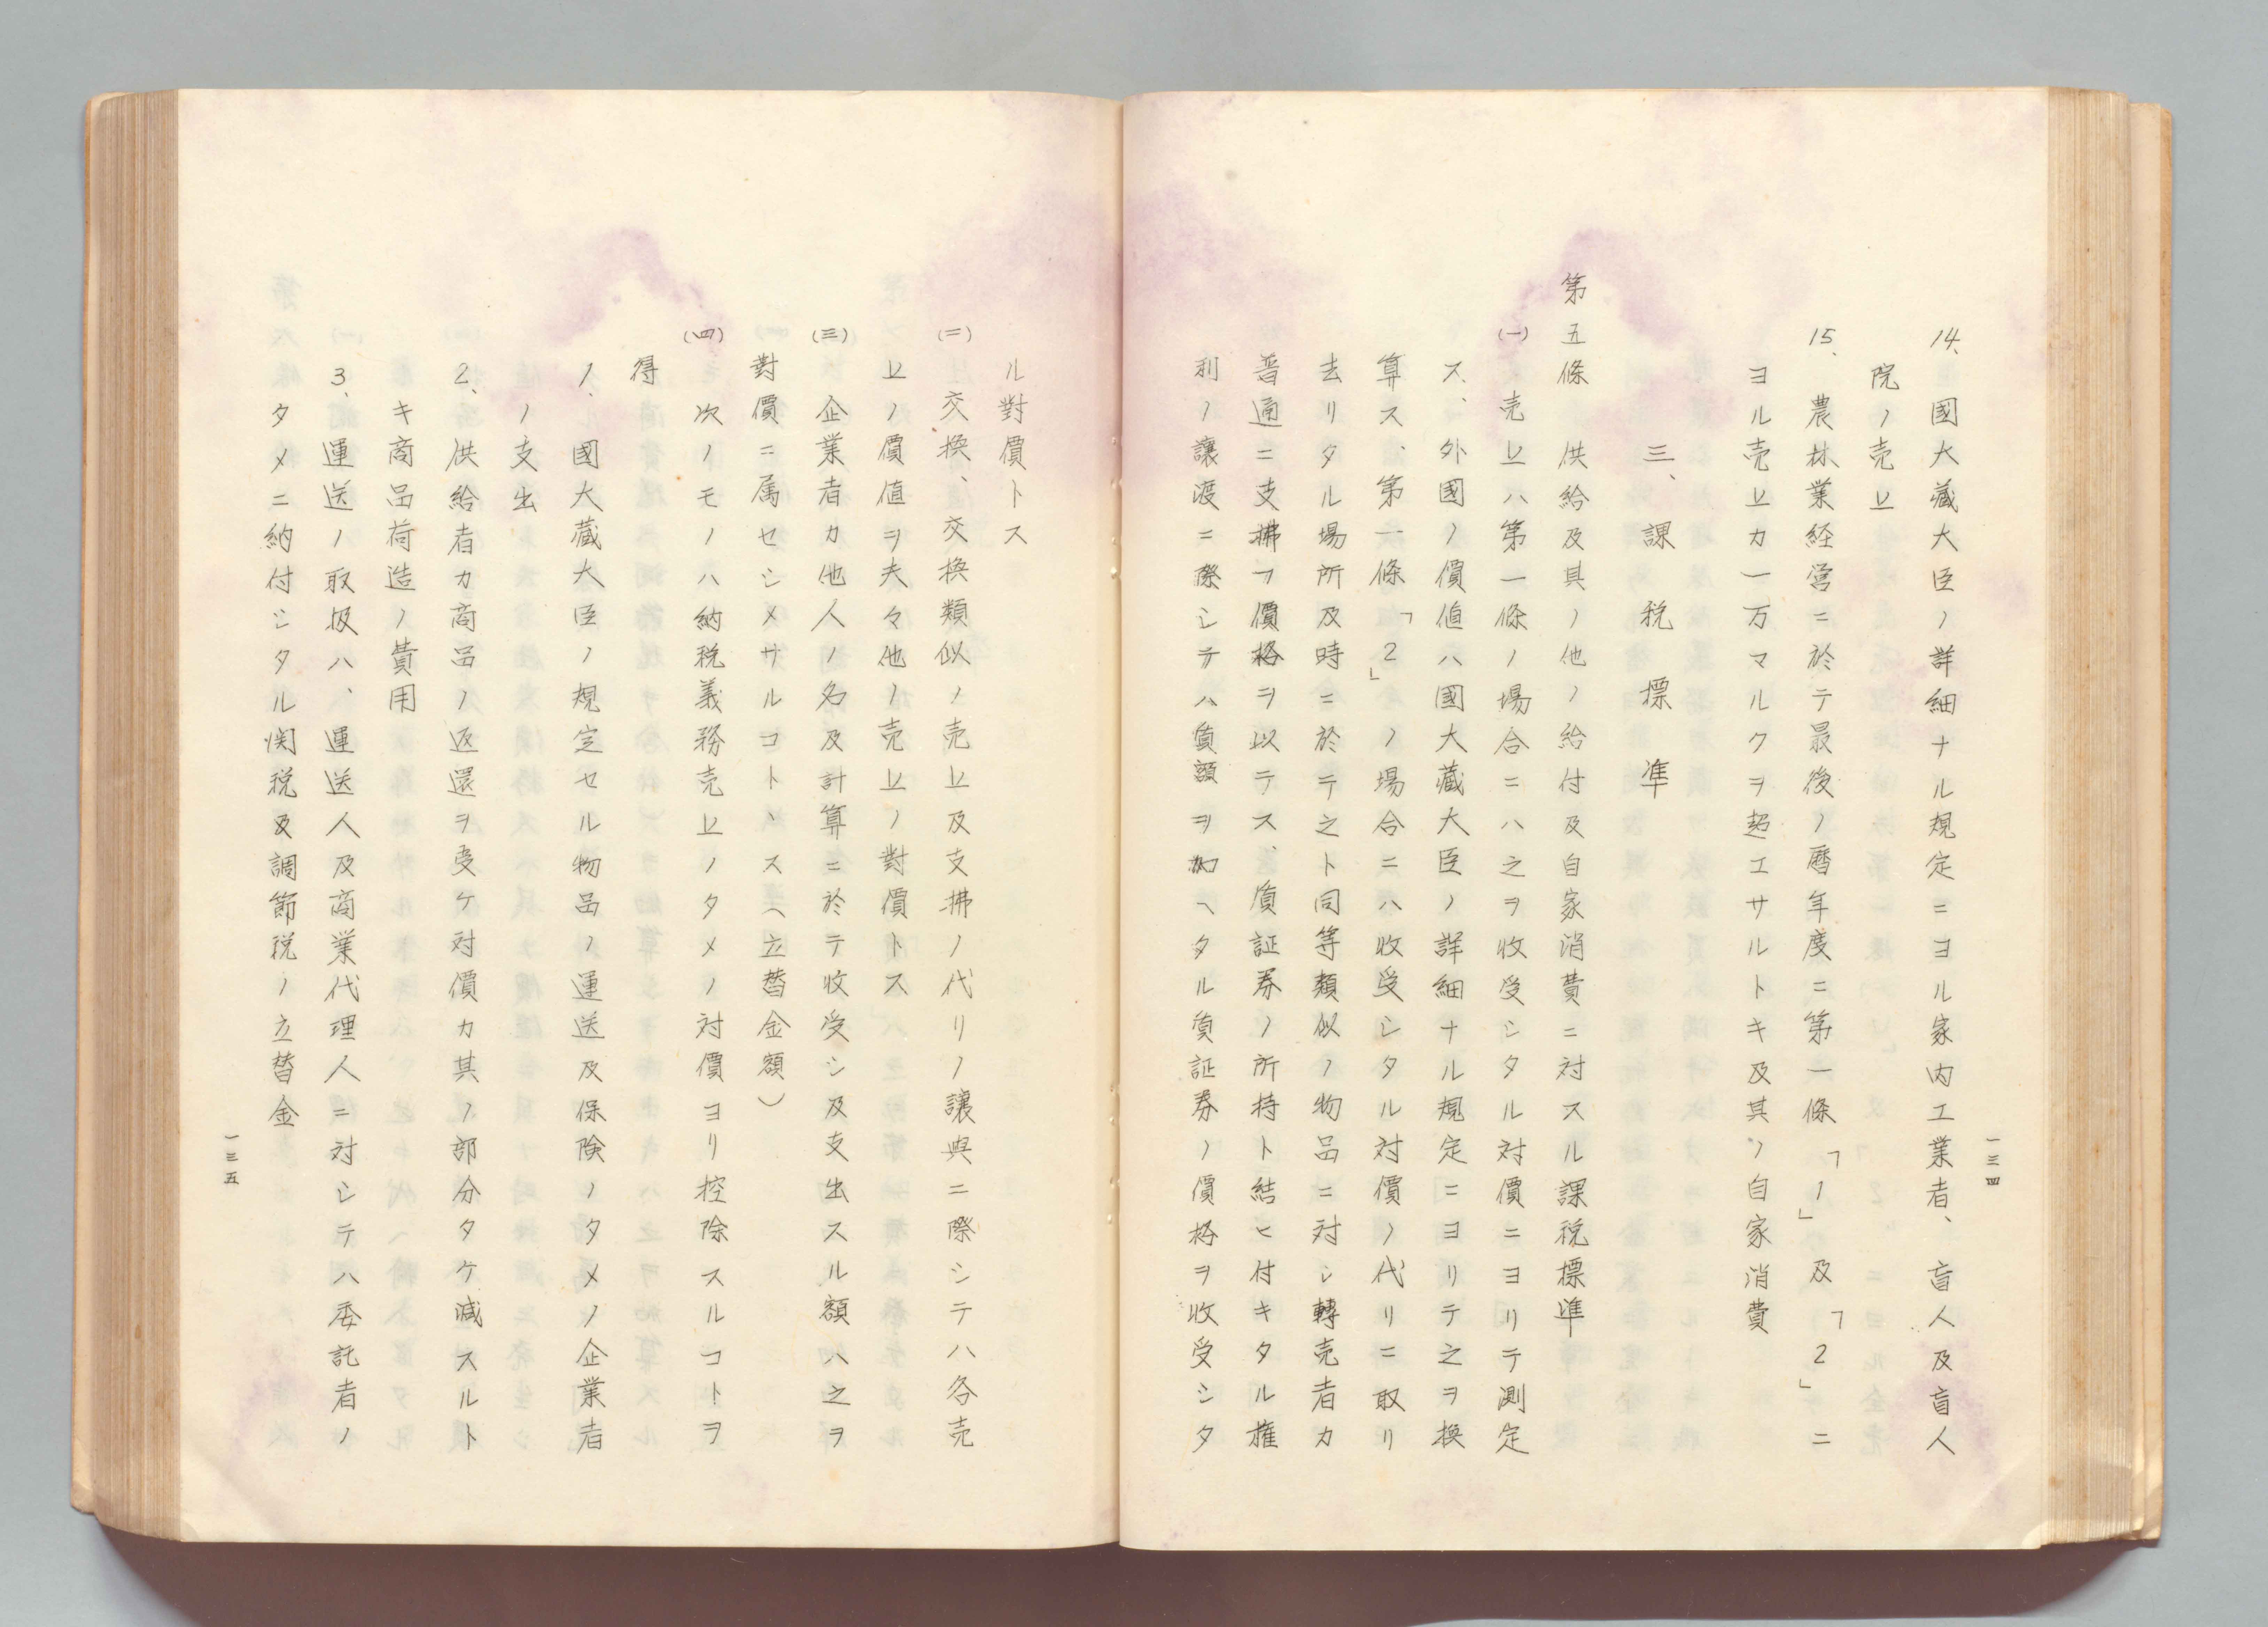 14、國大藏大臣ノ詳細ナル規定ニヨル家内工業者、盲人及盲人
院ノ売上
15、農林業経営ニ於テ最後ノ暦年度ニ第一條「1」及「2」ニ
ヨル売上カ一万マルクヲ超エサルトキ及其ノ自家消費
三、課税標準
第五條 供給及其ノ他ノ給付及自家消費ニ対スル課税標準
(一) 売上ハ第一條ノ場合ニハ之ヲ收受シタル対價ニヨリテ測定
ス、外國ノ價値ハ國大藏大臣ノ詳細ナル規定ニヨリテ之ヲ換
算ス、第一條「2」ノ場合ニハ收受シタル対價ノ代リニ取リ
去リタル場所及時ニ於テ之ト同等類似ノ物品ニ対シ轉売者カ
普通ニ支拂フ價格ヲ以テス、質証券ノ所持ト結ヒ付キタル権
利ノ讓渡ニ際シテハ質額ヲ加ヘタル質証券ノ價格ヲ收受シタ
一三四
ル對價トス
(二) 交換、交換類似ノ売上及支拂ノ代リノ讓與ニ際シテハ各売
上ノ價値ヲ夫々他ノ売上ノ對價トス
(三) 企業者カ他人ノ名及計算ニ於テ收受シ及支出スル額ハ之ヲ
對價ニ属セシメサルコトヽス(立替金額)
(四) 次ノモノハ納税義務売上ノタメノ対價ヨリ控除スルコトヲ
得
1、國大藏大臣ノ規定セル物品ノ運送及保険ノタメノ企業者
ノ支出
2、供給者カ商品ノ返還ヲ受ケ対價カ其ノ部分タケ減スルト
キ商品荷造ノ費用
3、運送ノ取扱ハ、運送人及商業代理人ニ対シテハ委託者ノ
タメニ納付シタル関税及調節税ノ立替金
一三五